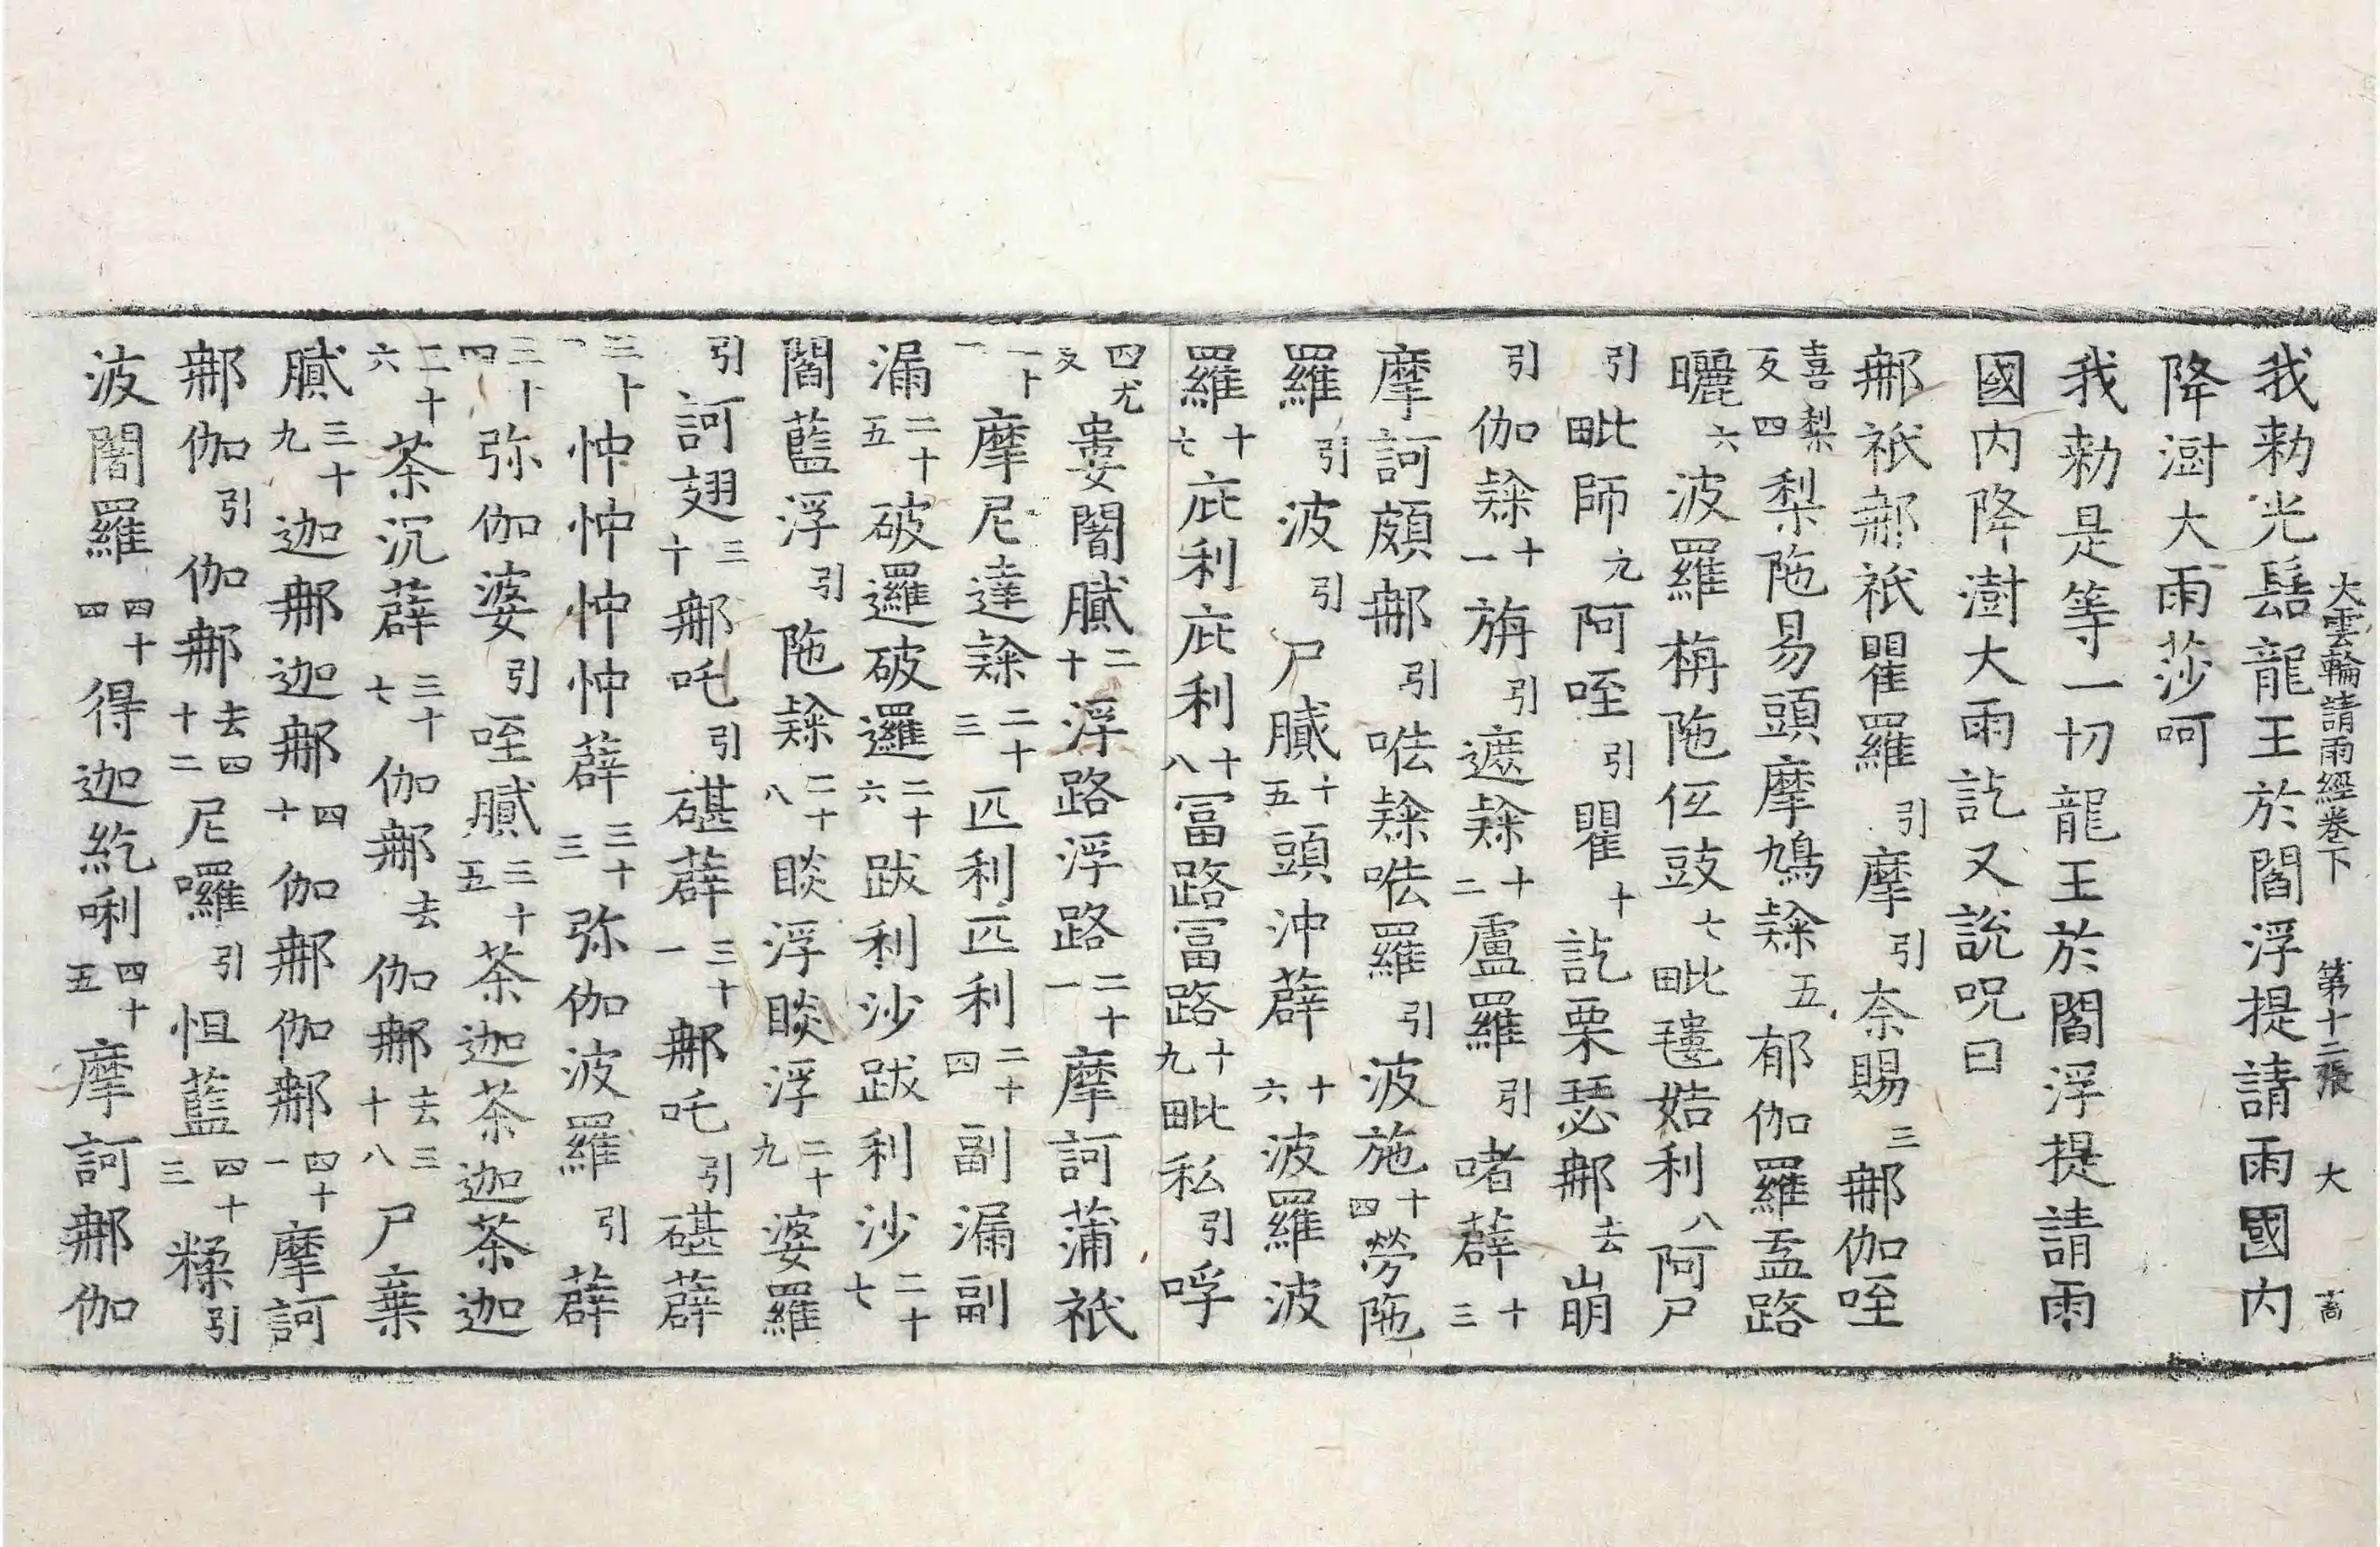 大雲輪請雨經卷下 第十二張 大
我勑光髻龍王於閻浮提請雨國內
降澍大雨莎呵
我勑是等一切龍王於閻浮提請雨
國內降澍大雨訖又說呪曰
那祇那祇瞿羅引摩引奈賜三那伽咥
喜梨反四梨陁易頭摩鳩隸五郁伽羅盂路
曬六波羅栴陁伍豉七毗氀姞利八阿尸
引毗師九阿咥引瞿十訖栗瑟那去崩
引伽隸十一旃引遮隸十二盧羅引啫薜十三
摩訶頗那引呿隸呿羅引波施十四勞陁
羅引波引尸膩十五頭沖薜十六波羅波
羅十七庇利庇利十八冨路冨路十九毗私引呼
四尤反婁闍膩二十浮路浮路二十一摩訶蒲祇
二十一摩尼達隸二十三匹利匹利二十四副漏副
漏二十五破邏破邏二十六跋利沙跋利沙二十七
閻藍浮引陁隸二十八睒浮睒浮二十九婆羅
引訶翅三十那吒引磪薜三十一那吒引磪薜
三十一忡忡忡忡薜三十三弥伽波羅引薜
三十四弥伽婆引咥膩三十五茶迦茶迦茶迦
二十六茶沉薜三十七伽那去伽那去三十八尸棄
膩三十九迦那迦那四十伽那伽那四十一摩訶
那伽引伽那去四十二尼囉引怛藍四十三糅引
波闍羅四十四得迦紇唎四十五摩訶那伽